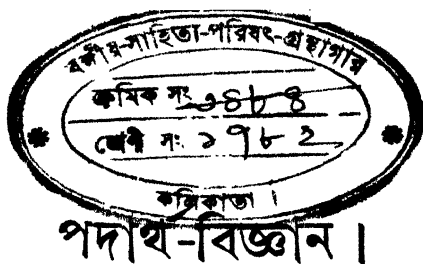 বঙ্গীয়-সাহিত্য-পরিষৎ-গ্রন্থাগার
ক্রমিক সং ৩৪৮৪
শ্রেণী সং ১৭৮২
কলিকাতা ।
পদার্থ-বিজ্ঞান ।